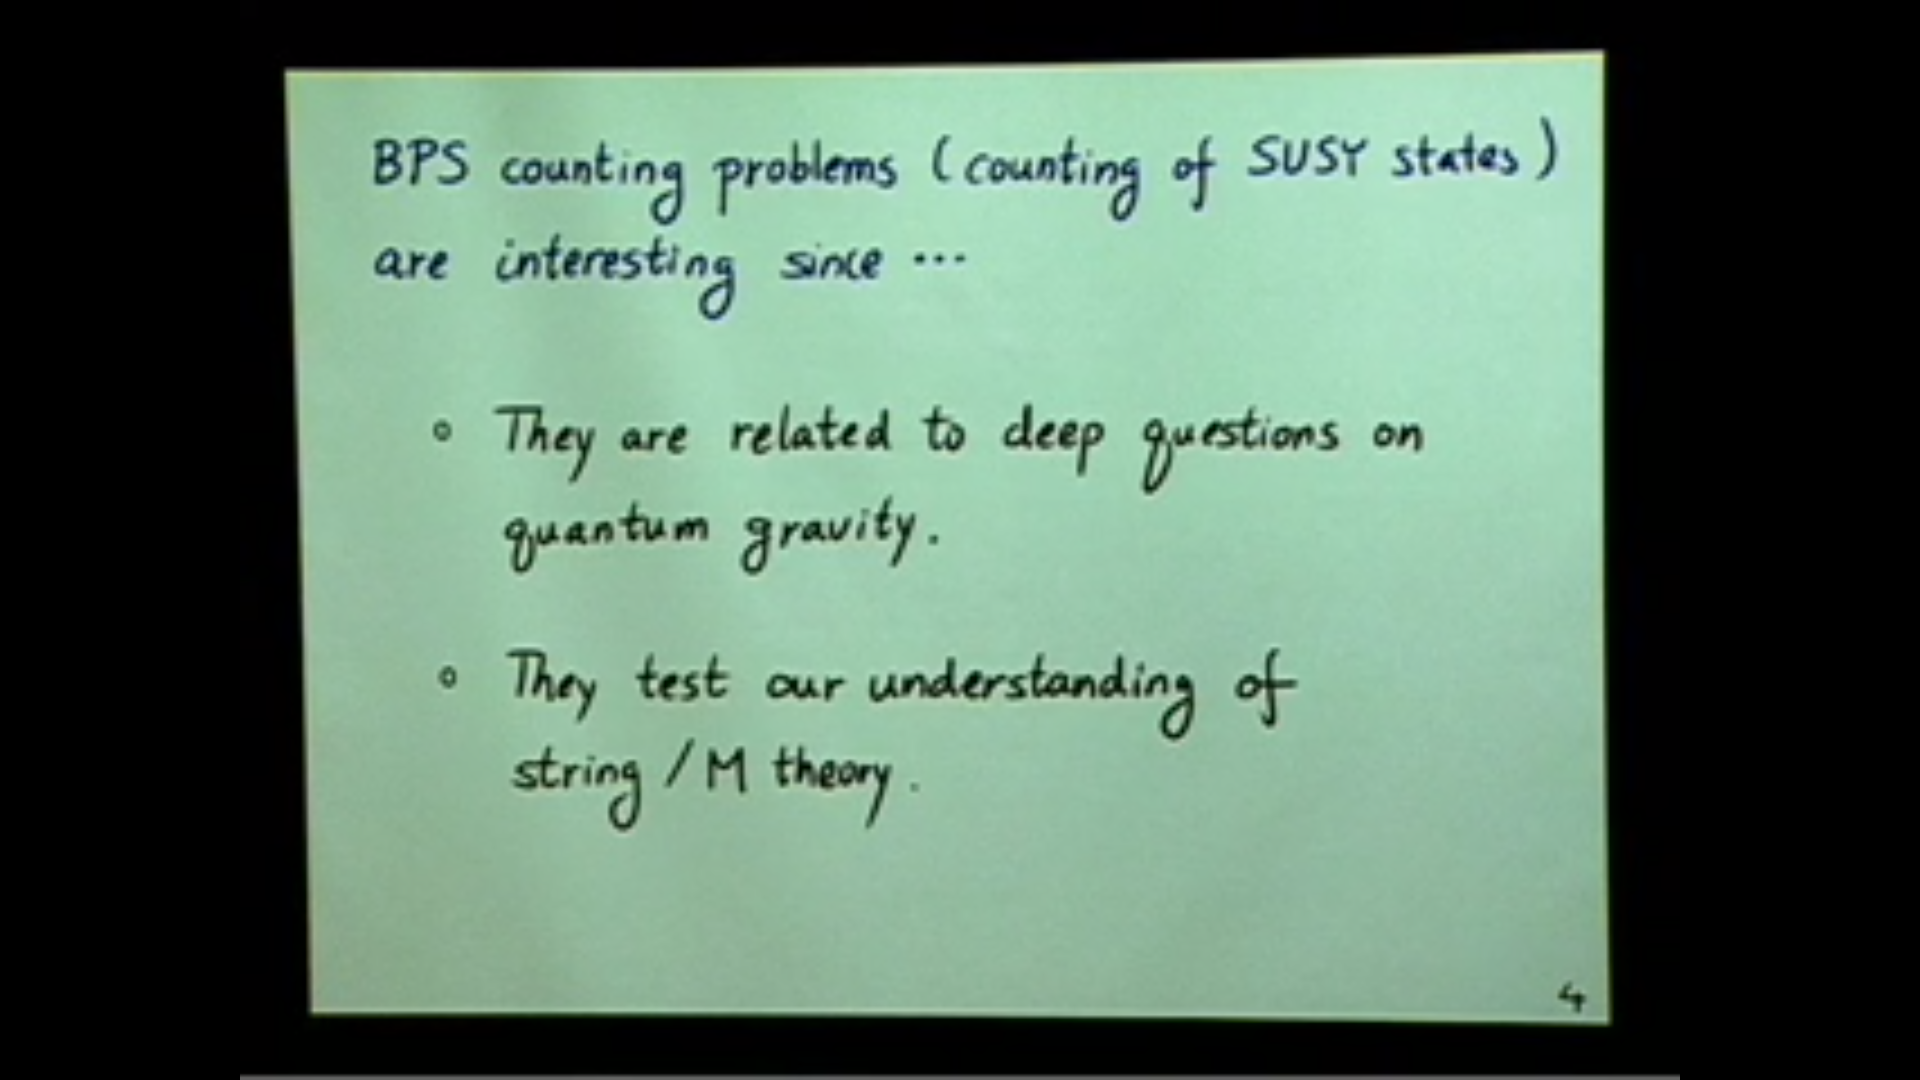 BPS counting problems (counting of SUSY states)
are interesting since ...
° They are related to deep questions on
quantum gravity.
° They test our understanding of
string / M theory.
4